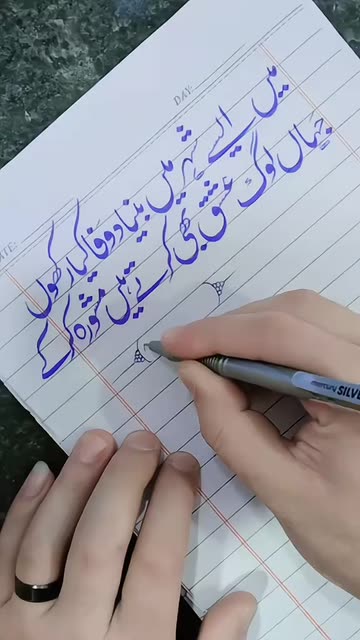 DAY:
DATE:
میں ایسے شہر میں بنیادِ وفا کیا رکھوں
جہاں لوگ عشق بھی کرتے ہیں مشورہ کر کے
mercury SILVE